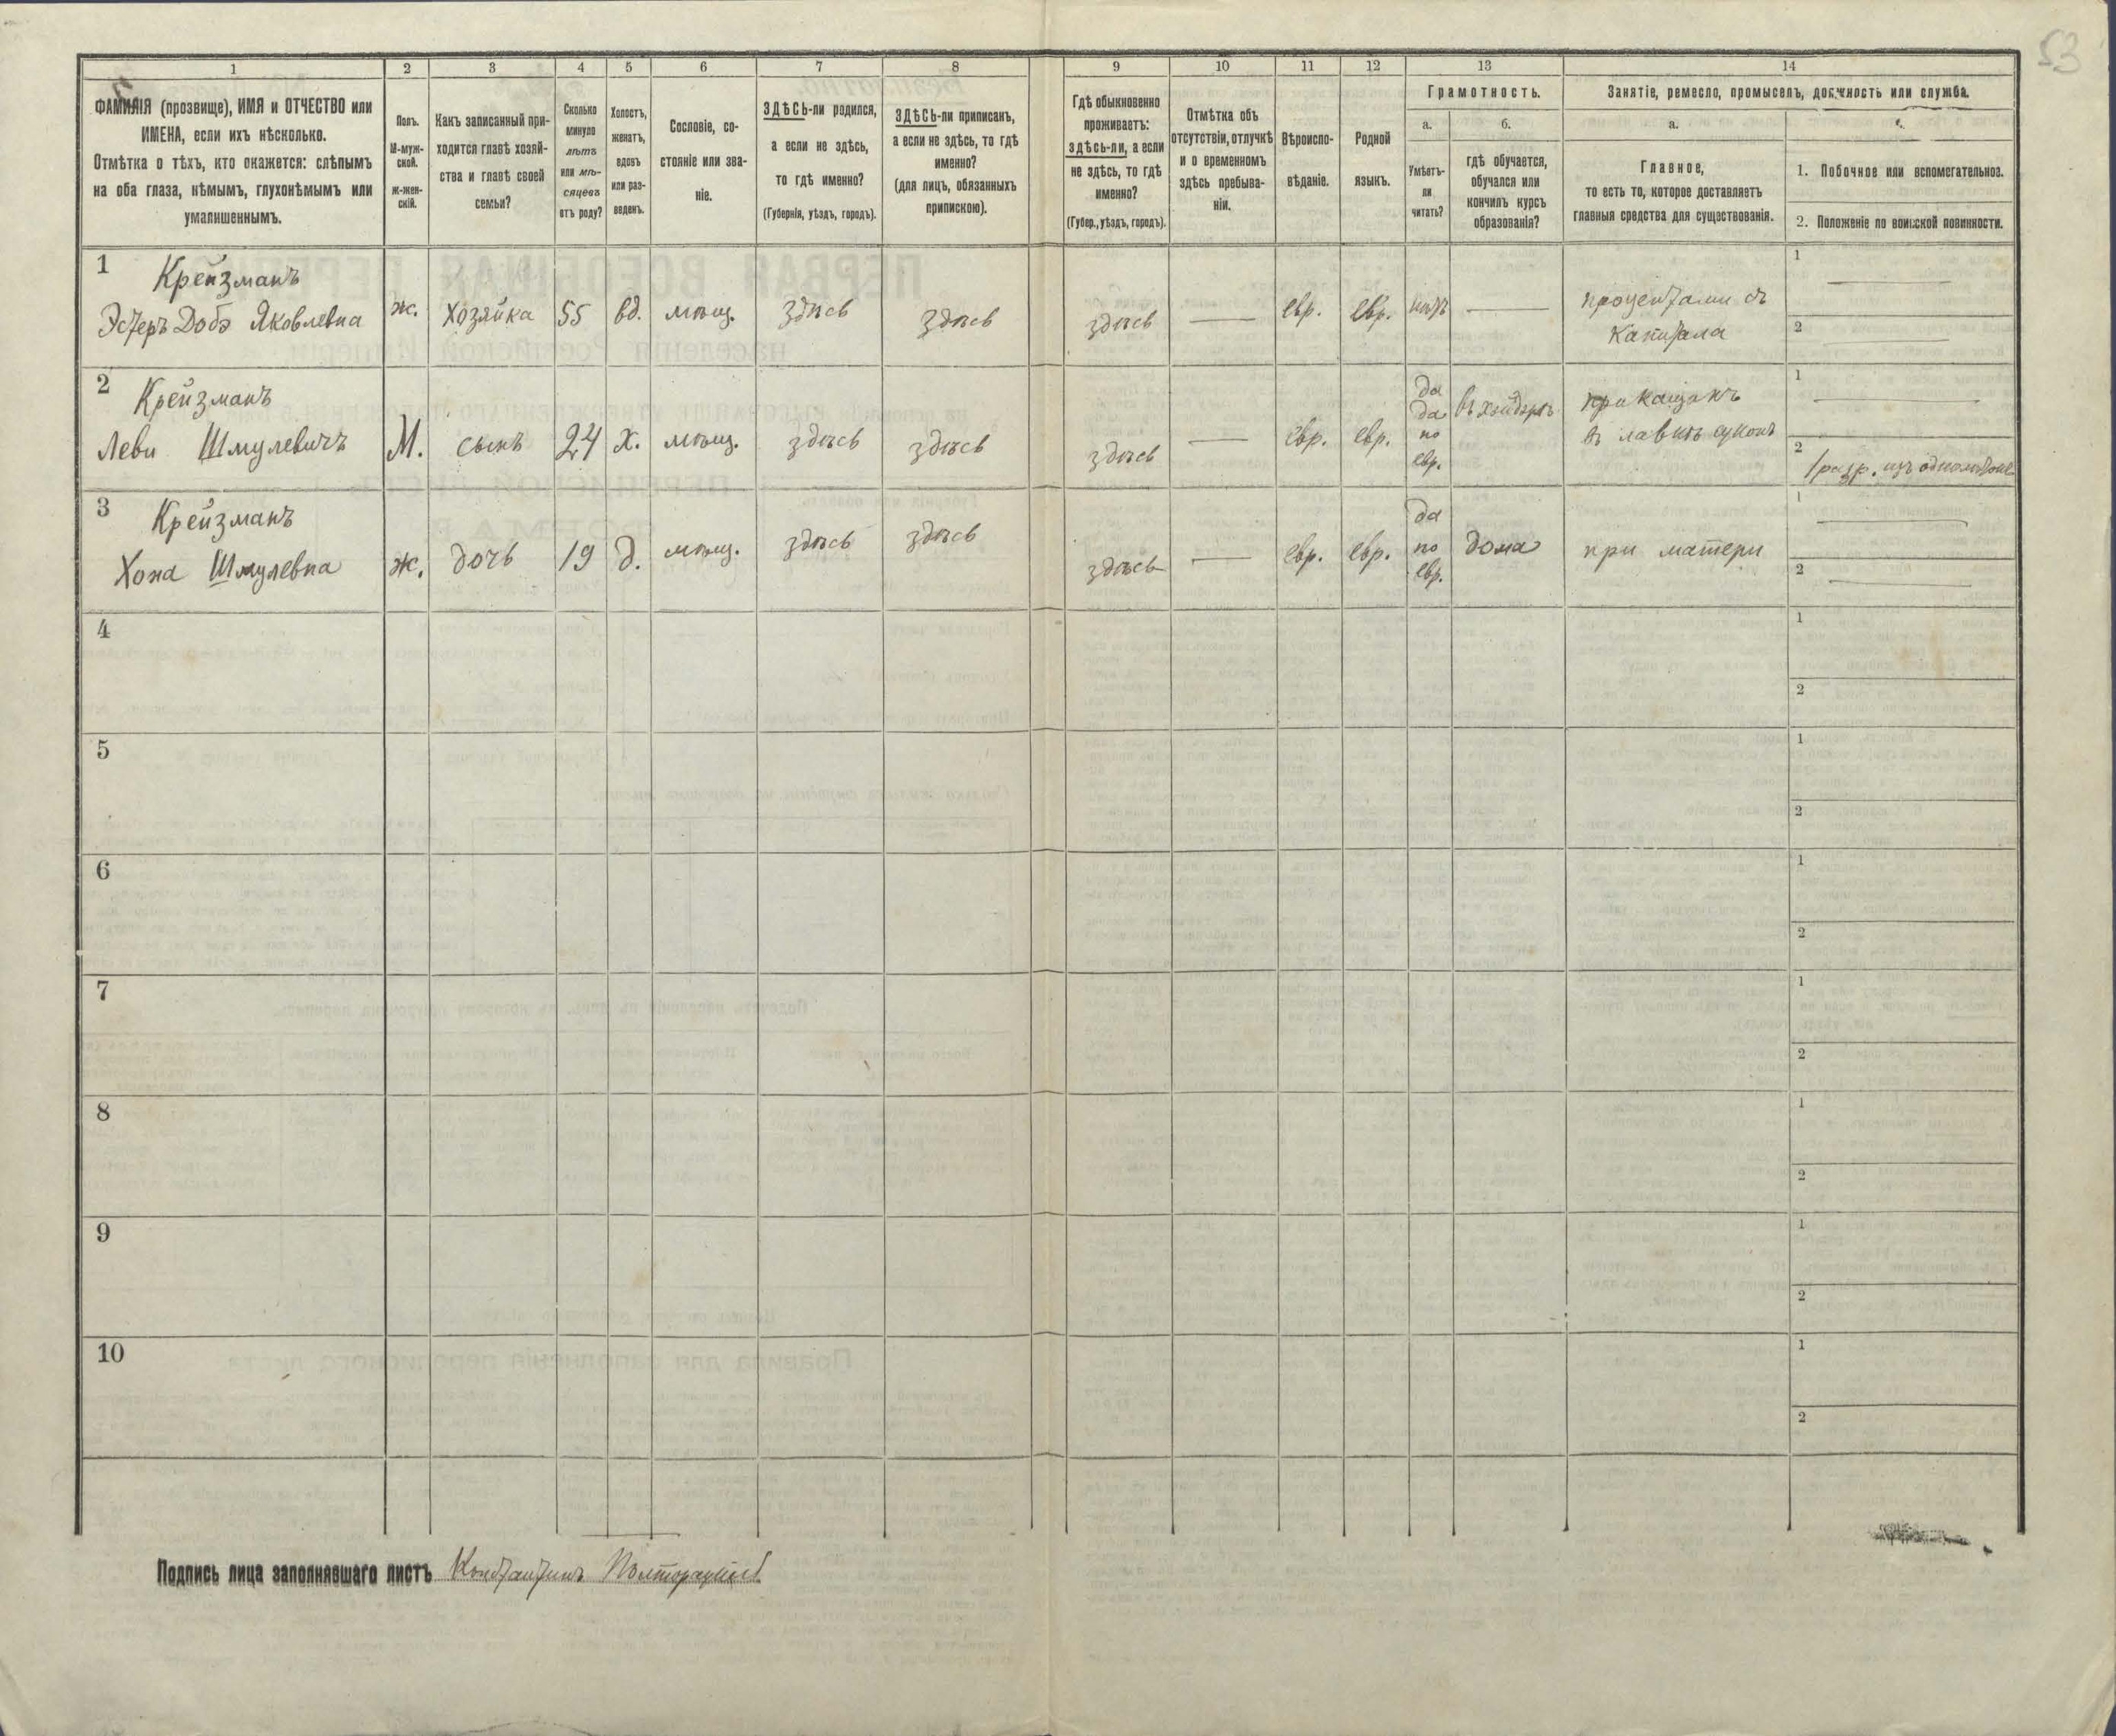 53
1
2
3
4
5
6
7
8
9
10
11
12
13
14
ФАМИЛІЯ (прозвище), ИМЯ и ОТЧЕСТВО или
ИМЕНА, если ихъ нѣсколько.
Отмѣтка о тѣхъ, кто окажется: слѣпымъ
на оба глаза, нѣмымъ, глухонѣмымъ или
умалишеннымъ.
Полъ.
М-муж-
ской.
ж-жен-
скій.
Какъ записанный при-
ходится главѣ хозяй-
ства и главѣ своей
семьи?
Сколько
минуло
лѣтъ
или мѣ-
сяцевъ
отъ роду?
Холостъ,
женатъ,
вдовъ
или раз-
веденъ.
Сословіе, со-
стояніе или зва-
ніе.
ЗДѢСЬ-ли родился,
а если не здѣсь,
то гдѣ именно?
(Губернія, уѣздъ, городъ).
ЗДѢСЬ-ли приписанъ,
а если не здѣсь, то гдѣ
именно?
(для лицъ, обязанныхъ
припискою).
Гдѣ обыкновенно
проживаетъ:
здѣсь-ли, а если
не здѣсь, то гдѣ
именно?
(Губер., уѣздъ, городъ).
Отмѣтка объ
отсутствіи, отлучкѣ
и о временномъ
здѣсь пребыва-
ніи.
Вѣроиспо-
вѣданіе.
Родной
языкъ.
Грамотность.
а.
Умѣетъ-
ли
читать?
б.
гдѣ обучается,
обучался или
кончилъ курсъ
образованія?
Занятіе, ремесло, промыселъ, должность или служба.
а.
Главное,
то есть то, которое доставляетъ
главныя средства для существованія.
1. Побочное или вспомогательное.
2. Положеніе по воинской повинности.
1
Крейзманъ
Эстеръ Доба Яковлевна
ж.
хозяйка
55
вд.
мѣщ.
здѣсь
здѣсь
здѣсь
евр.
евр.
нѣтъ
процентами съ
капитала
1
2
2
Крейзманъ
Леви Шмулевичъ
М.
сынъ
24
х.
мѣщ.
здѣсь
здѣсь
здѣсь
евр.
евр.
да
да
по
евр.
въ хэйдерѣ
приказчикъ
въ лавкѣ суконъ
1
2
1 разр.
3
Крейзманъ
Хона Шмулевна
ж.
дочь
19
д.
мѣщ.
здѣсь
здѣсь
здѣсь
евр.
евр.
да
по
евр.
дома
при матери
1
2
4
1
2
5
1
2
6
1
2
7
1
2
8
1
2
9
1
2
10
1
2
Подпись лица заполнявшаго листъ Константинъ